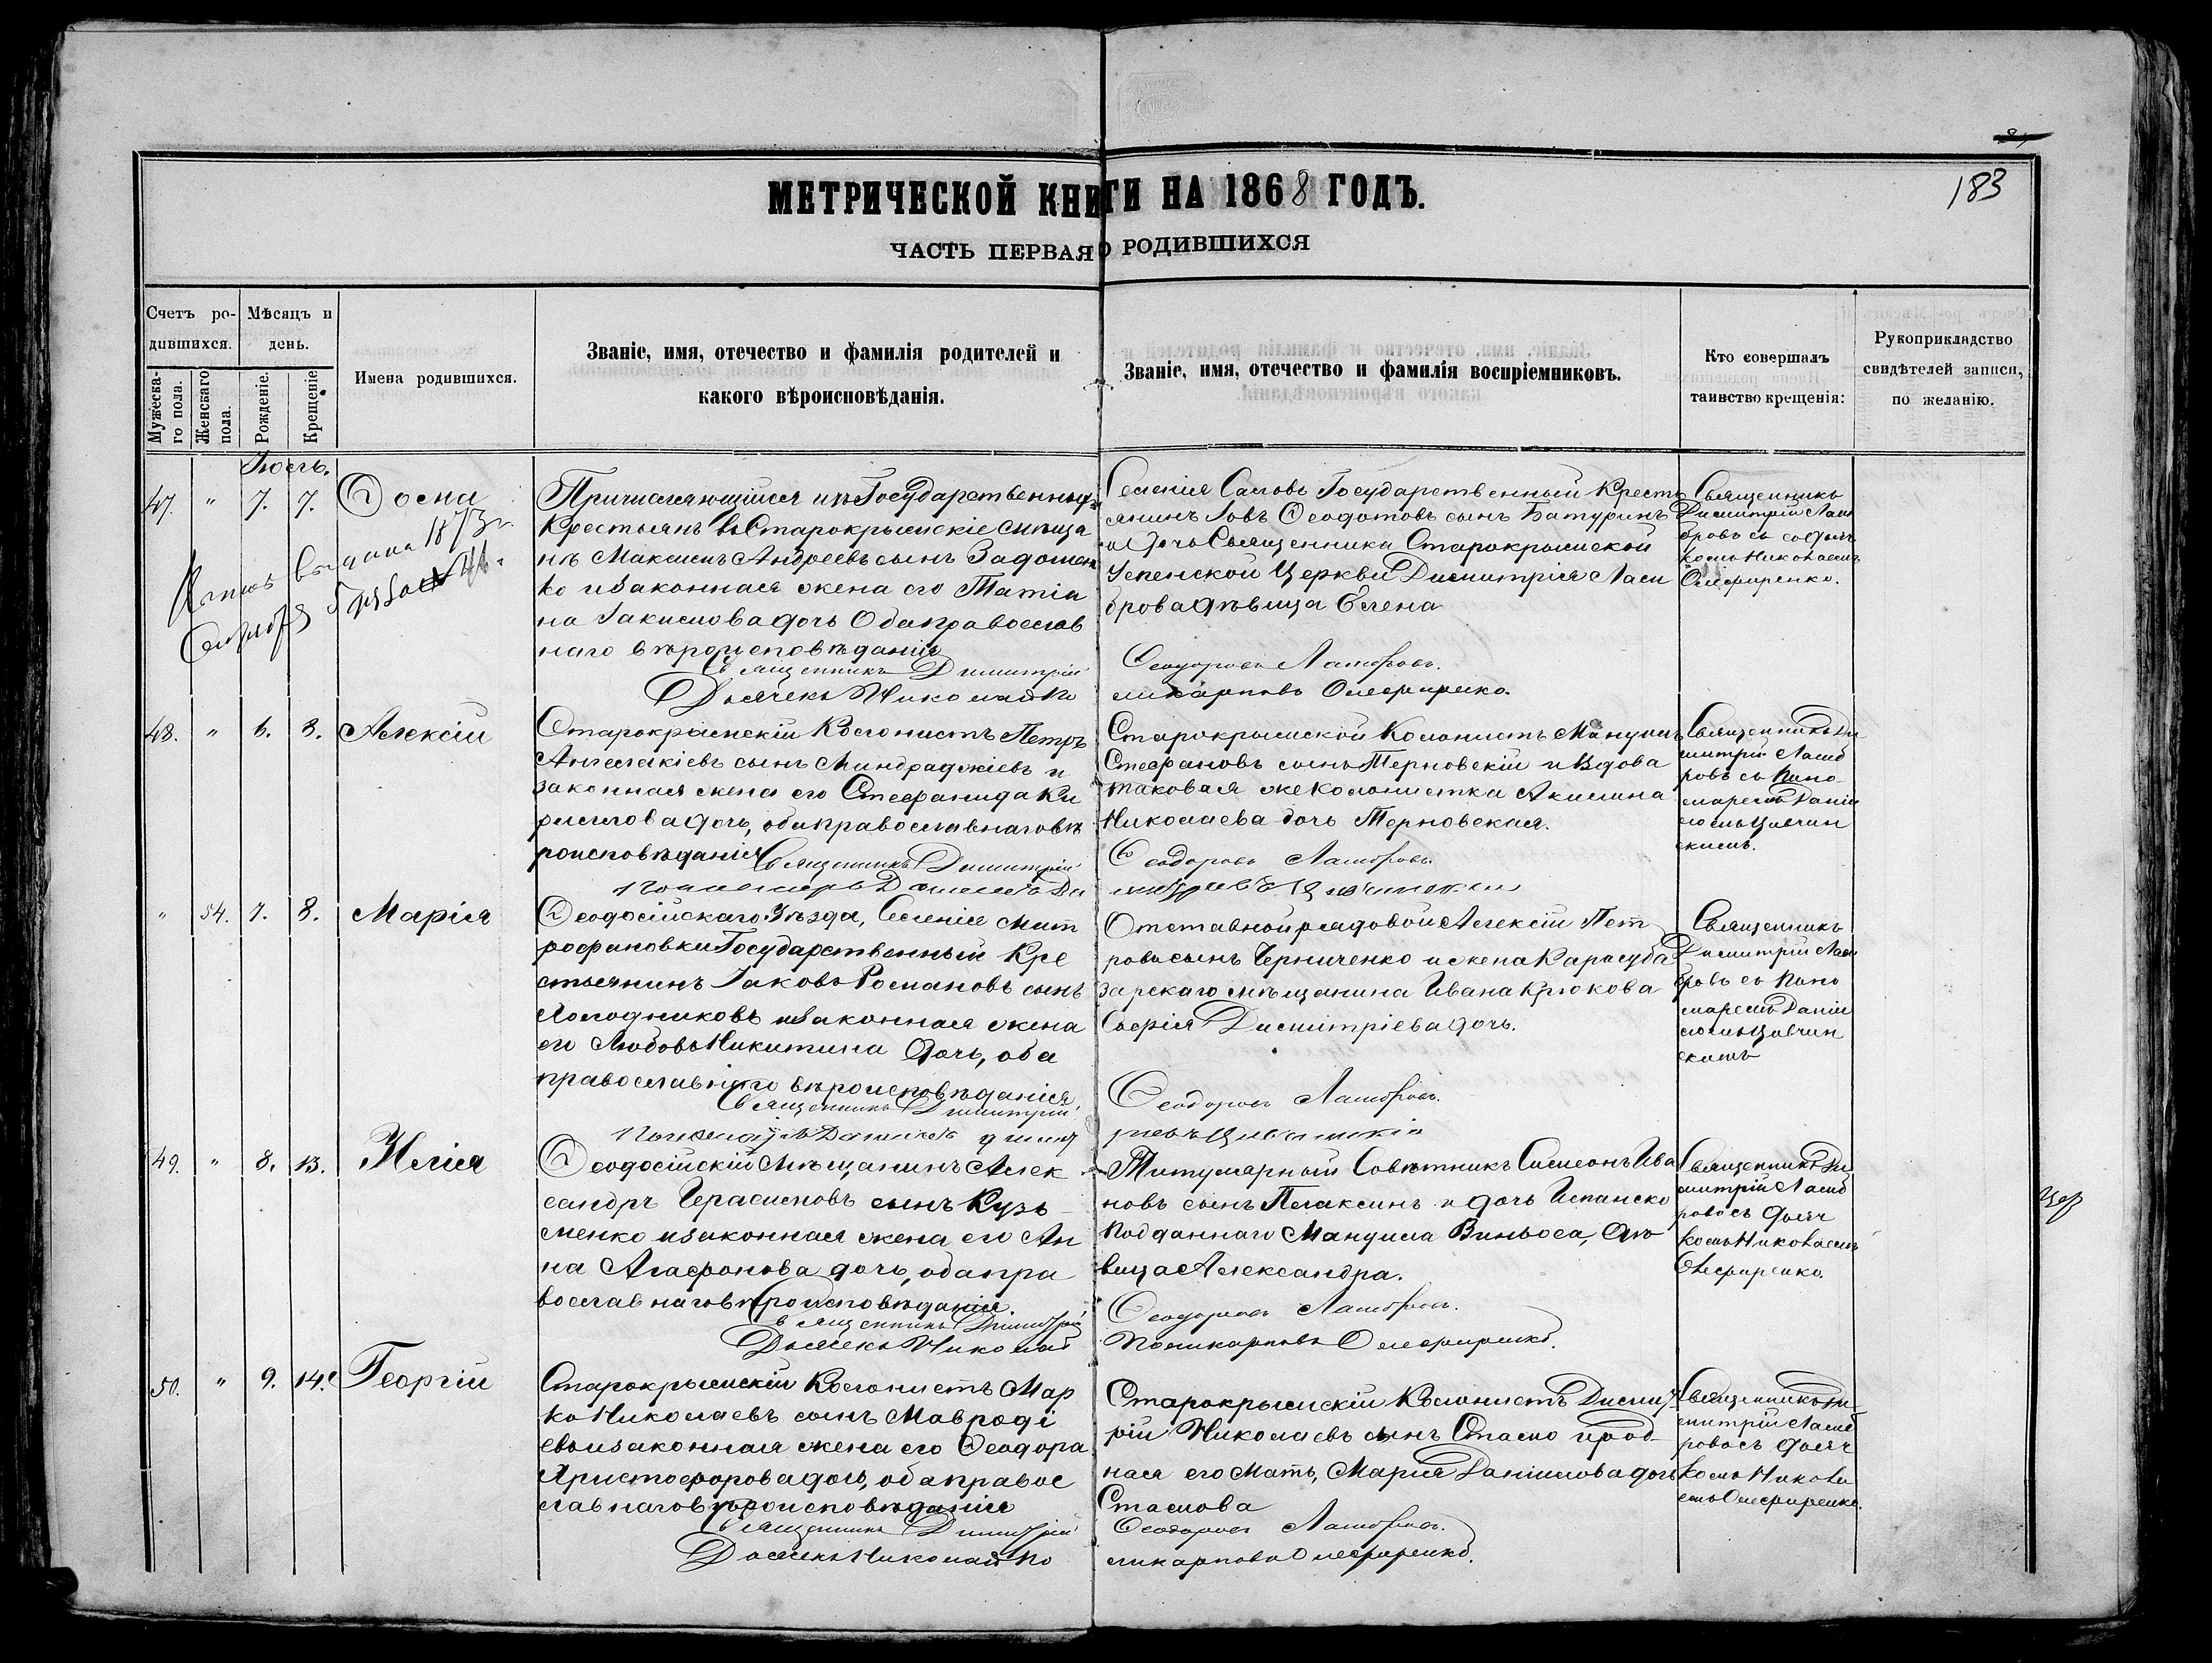 183
МЕТРИЧЕСКОЙ КНИГИ НА 1868 ГОДЪ.
ЧАСТЬ ПЕРВАЯ О РОДИВШИХСЯ
Счетъ ро-
дившихся.
Мужеска-
го пола.
Женскаго
пола.
Мѣсяцъ и
день.
Рожденіе.
Крещеніе
Имена родившихся.
Званіе, имя, отечество и фамилія родителей и
какого вѣроисповѣданія.
Званіе, имя, отечество и фамилія воспріемниковъ.
Кто совершалъ
таинство крещенія:
Рукоприкладство
свидѣтелей записи,
по желанію.
47. " 7. 7.
выдана 1873 г.
Государственныхъ
Крестьянъ въ Старокрымскіе мѣща
нѣ Максимъ Андреевъ сынъ Задомен
ко и законная жена его Татіа
на Іакимова дочь Оба православ
наго вѣроисповѣданія
Священникъ Димитрій
Дьячекъ Николай По
Селенія Саловъ Государственный Кресть
янинъ Іовъ Ѳеодотовъ сынъ Батуринъ
и дочь Священника Старокрымской
Успенской Церкви Димитрія
дѣвица Елена
Ѳеодоровъ
ликарповъ
Священникъ
Димитрій
Николаемъ
48. " 6. 8. Алексій
Старокрымскій Колонистъ Петръ
сынъ Миндраджіевъ и
законная жена его Стефанида Ки
риллова дочь, оба православнаго вѣ
роисповѣданія
Священникъ Димитрій
Старокрымской Колонистъ Мануилъ
Стефановъ сынъ Терновскій и Вдова
таковая же Колонистка Акилина
Николаева дочь Терновская.
Ѳеодоровъ
Священникъ Ди
митрій
ровъ съ Поно
маремъ Даніи
ломъ Цавчин
скимъ.
" 54. 7. 8. Марія
Ѳеодосійскаго Уѣзда, Селенія Мит
рофановки Государственный Кре
стьянинъ Іаковъ Романовъ сынъ
Холодниковъ и законная жена
его Любовь Никитина дочь, оба
православнаго вѣроисповѣданія
Священникъ Димитрій
Отставной рядовой Алексій Пет
ровъ сынъ Черниченко и жена Карасуба
зарскаго мѣщанина Ивана Крюкова
Софія Димитріева дочь.
Ѳеодоровъ
Священникъ
Димитрій
бровъ съ Поно
маремъ Даніи
ломъ Цавчин
скимъ
49. " 8. 13. Илія
Ѳеодосійскій Мѣщанинъ Алек
сандръ Герасимовъ сынъ Кузь
менко и законная жена его Ан
на Агафонова дочь, оба пра
вославнаго вѣроисповѣданія.
Священникъ Димитрій
Дьячекъ Николай
Титулярный Совѣтникъ Симеонъ Ива
новъ сынъ Плаксинъ и дочь Испанско
подданнаго Мануила Виньоса, дѣ
вица Александра.
Ѳеодоровъ
Поликарповъ
Священникъ Ди
митрій
ровъ съ Дьяч
комъ Николаемъ
50. " 9. 14. Георгій
Старокрымскій Колонистъ Мар
ко Николаевъ сынъ Мавроді
евъ и законная жена его Ѳеодора
Христофорова дочь, оба православ
славнаго вѣроисповѣданія
Священникъ Димитрій
Дьячекъ Николай По
Старокрымскій Колонистъ Димит
рій Николаевъ сынъ
ная его Мать, Марія Даніилова дочь
Стамова
Ѳеодоровъ
ликарповъ
Священникъ Ди
митрій
ровъ съ Дьяч
комъ Никола